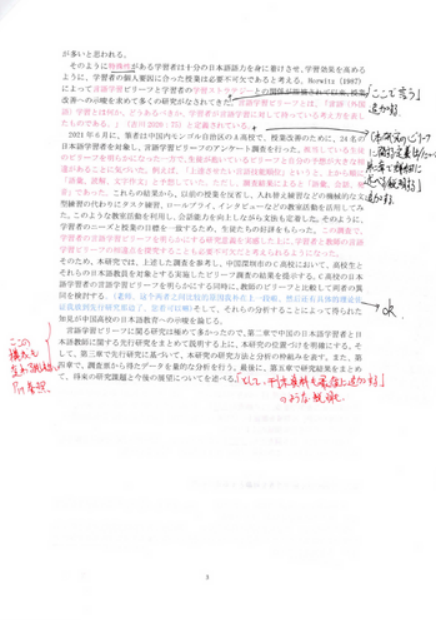 が多いと思われる。
そのように特殊性がある学習者は十分の日本語語力を身に着けさせ、学習効果を高める
ように、学習者の個人要因に合った授業は必要不可欠であると考える。Horwitz (1987)
によって言語学習ビリーフと学習者の学習ストラテジーとの関係が指摘されて以来、授業
改善への示唆を求めて多くの研究がなされてきた。言語学習ビリーフとは、「言語（外国
語）学習とは何か、どうあるべきか、学習者が言語学習に対して持っている考え方を表し
たものである。」と定義されている。
「ここで言う」
追加する
2021 年 6 月に、筆者は中国内モンゴル自治区の A 高校で、授業改善のために、24 名の
日本語学習者を対象し、言語学習ビリーフのアンケート調査を行った。担当している生徒
のビリーフを明らかになった一方で、生徒が抱いているビリーフと自分の予想が大きな相
違があることに気づいた。例えば、「上達させたい言語技能順位」というと、上から順に
「語彙、読解、文字作文」と予想していた。ただし、調査結果によると「語彙、会話、発
音」であった。これらの結果から、以前の授業を反省し、入れ替え練習などの機械的な文
型練習の代わりにタスク練習、ロールプライ、インタビューなどの教室活動を活用してみ
た。このような教室活動を利用し、会話能力を向上しながら文法も定着した。そのように、
学習者のニーズと授業の目標を一致するため、生徒たちの好評をもらった。この調査で、
学習者の言語学習ビリーフを明らかにする研究意義を実感した上に、学習者と教師の言語
学習ビリーフの相違点を探究することも必要不可欠だと考えられるようになった。
そのため、本研究では、上述した調査を参考し、中国深圳市の C 高校において、高校生と
それらの日本語教員を対象とする実施したビリーフ調査の結果を提示する。C 高校の日本
語学習者の言語学習ビリーフを明らかにする同時に、教師のビリーフと比較して両者の異
同を検討する。そして、それらの分析することによって得られた
知見が中国高校の日本語教育への示唆を論じる。
ok
言語学習ビリーフに関る研究は極めて多かったので、第二章で中国の日本語学習者と日
本語教師に関する先行研究をまとめて説明する上に、本研究の位置づけを明確にする。そ
して、第三章で先行研究に基づいて、本研究の研究方法と分析の枠組みを表す。また、第
四章で、調査票から得たデータを量的な分析を行う。最後に、第五章で研究結果をまとめ
て、将来の研究課題と今後の展望についてを述べる。
この
のような説明。
3